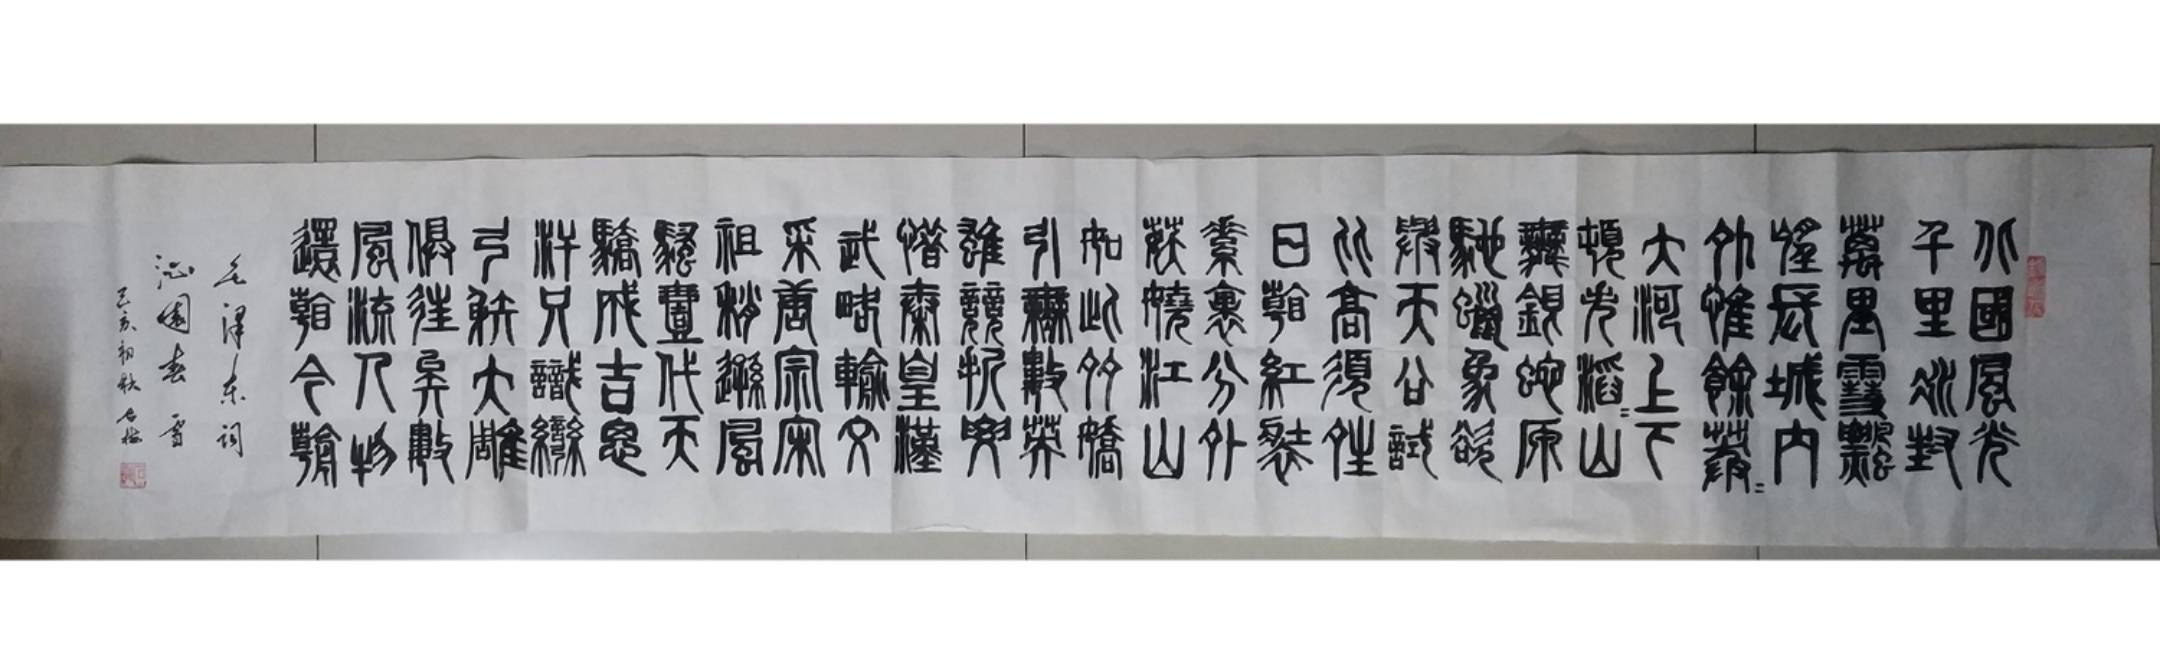 北國風光
千里冰封
萬里雪飄
望長城內
外惟餘莽=
大河上下
頓失滔=山
舞銀蛇原
馳蠟象欲
與天公試
比高須晴
日看紅裝
素裹分外
妖嬈江山
如此多嬌
引無數英
雄競折腰
惜秦皇漢
武略輸文
采唐宗宋
祖稍遜風
騷壹代天
驕成吉思
汗只識彎
弓射大雕
俱往矣數
風流人物
還看今朝
毛澤东詞
沁園春 雪
己亥初秋